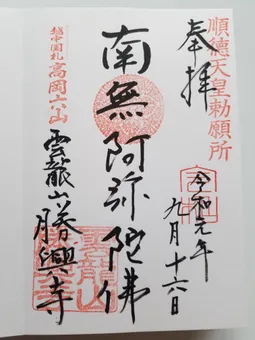 順德天皇勅願所
奉拝
令和元年
九月十六日
南無阿弥陀佛
越中国札
高岡六山
雲龍山勝興寺